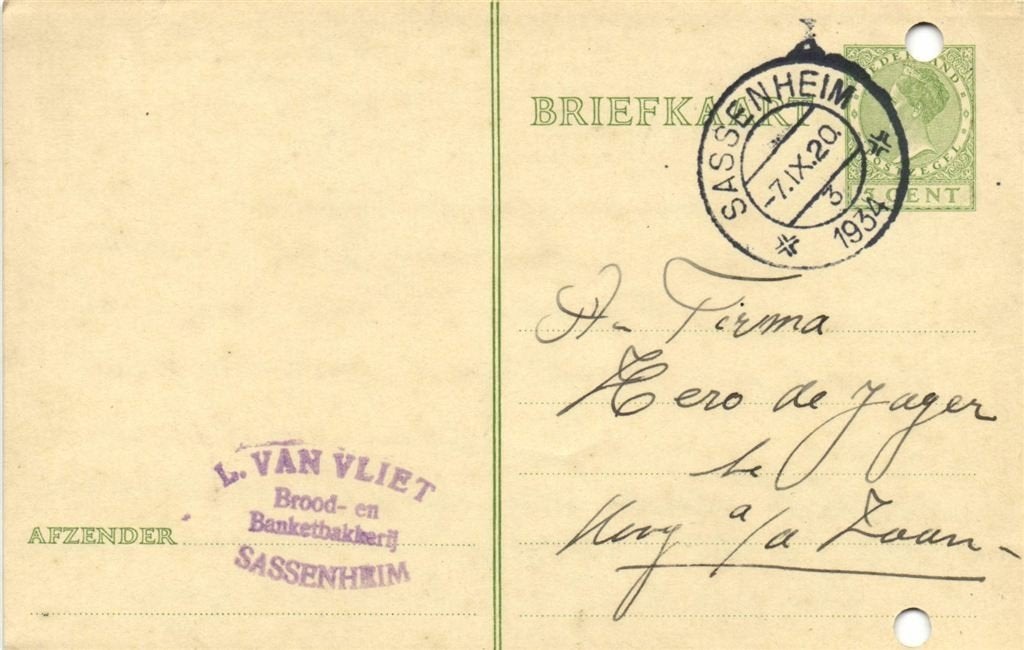 BRIEFKAART
NEDERLAND
POSTZEGEL
5 CENT
SASSENHEIM
-7.IX.20.
3
1934
A- Firma
Hero de Jager
te
Koog a/a Zaan-
L. VAN VLIET
Brood- en
Banketbakkerij
SASSENHEIM
AFZENDER